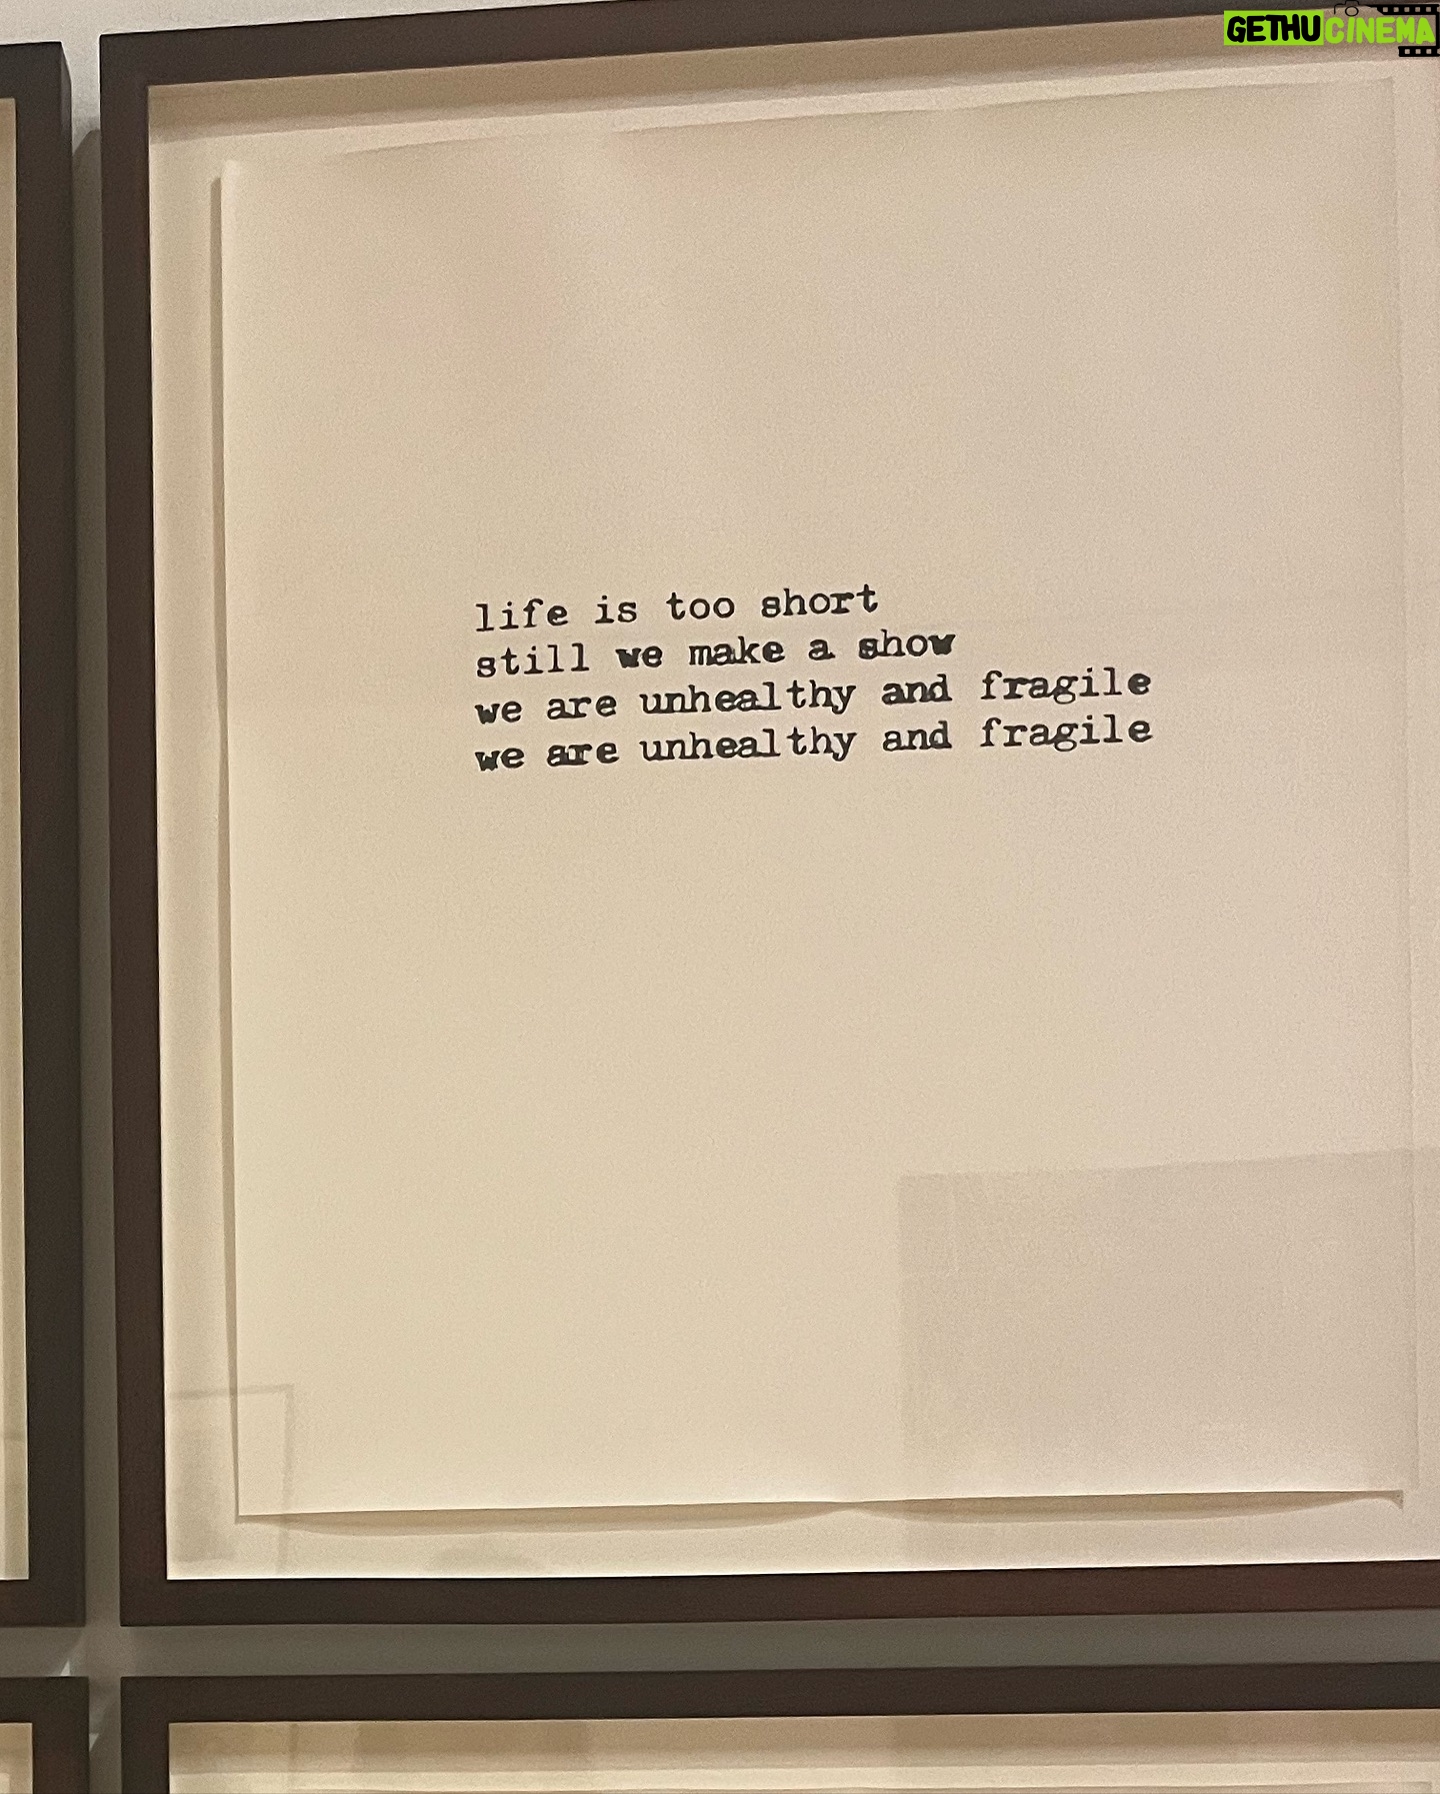 GETHUCINEMA
life is too short
still we make a show
we are unhealthy and fragile
we are unhealthy and fragile